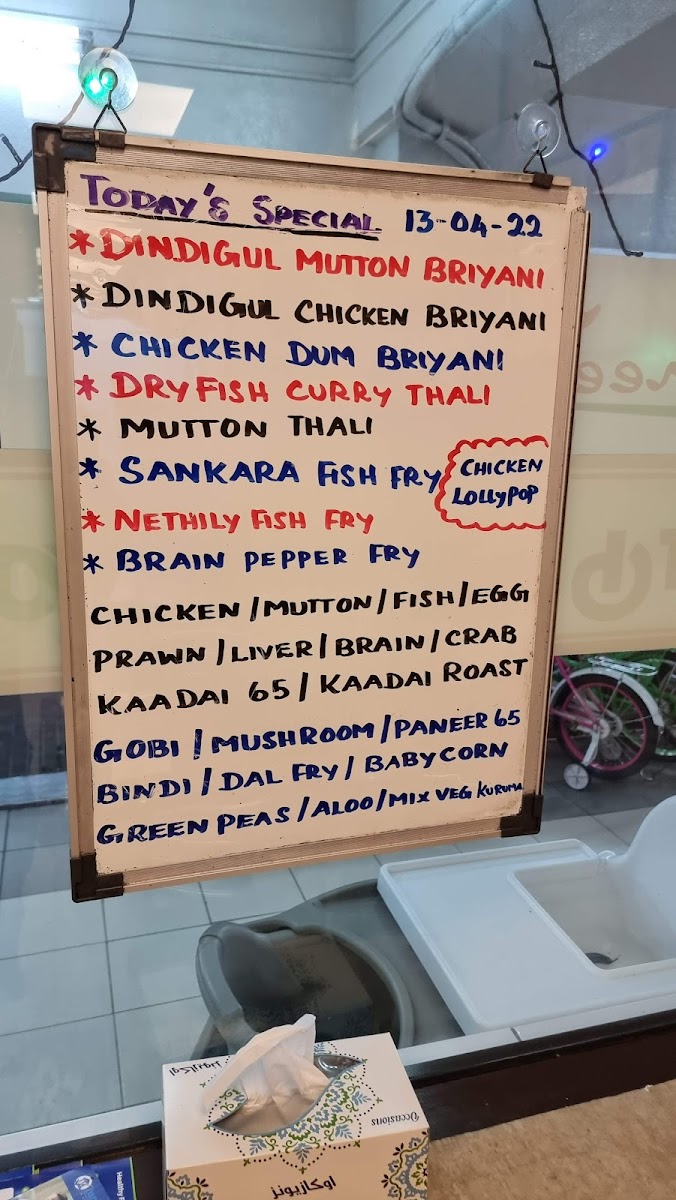 TODAY'S SPECIAL 13-04-22
* DINDIGUL MUTTON BRIYANI
* DINDIGUL CHICKEN BRIYANI
* CHICKEN DUM BRIYANI
* DRY FISH CURRY THALI
* MUTTON THALI
* SANKARA FISH FRY
CHICKEN
LOLLYPOP
* NETHILY FISH FRY
* BRAIN PEPPER FRY
CHICKEN / MUTTON / FISH / EGG
PRAWN / LIVER / BRAIN / CRAB
KAADAI 65 / KAADAI ROAST
GOBI / MUSHROOM / PANEER 65
BINDI / DAL FRY / BABYCORN
GREEN PEAS / ALOO / MIX VEG KURUMA
اوكازيونز
Occasions
اوكازيونز